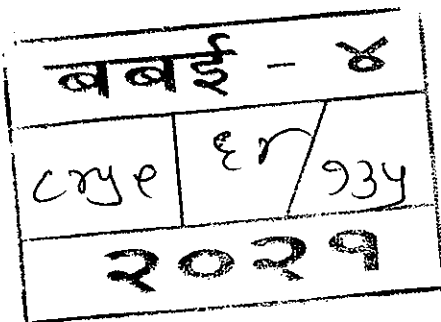 बबई - ४
८४५९ ६४/१३५
२०२१